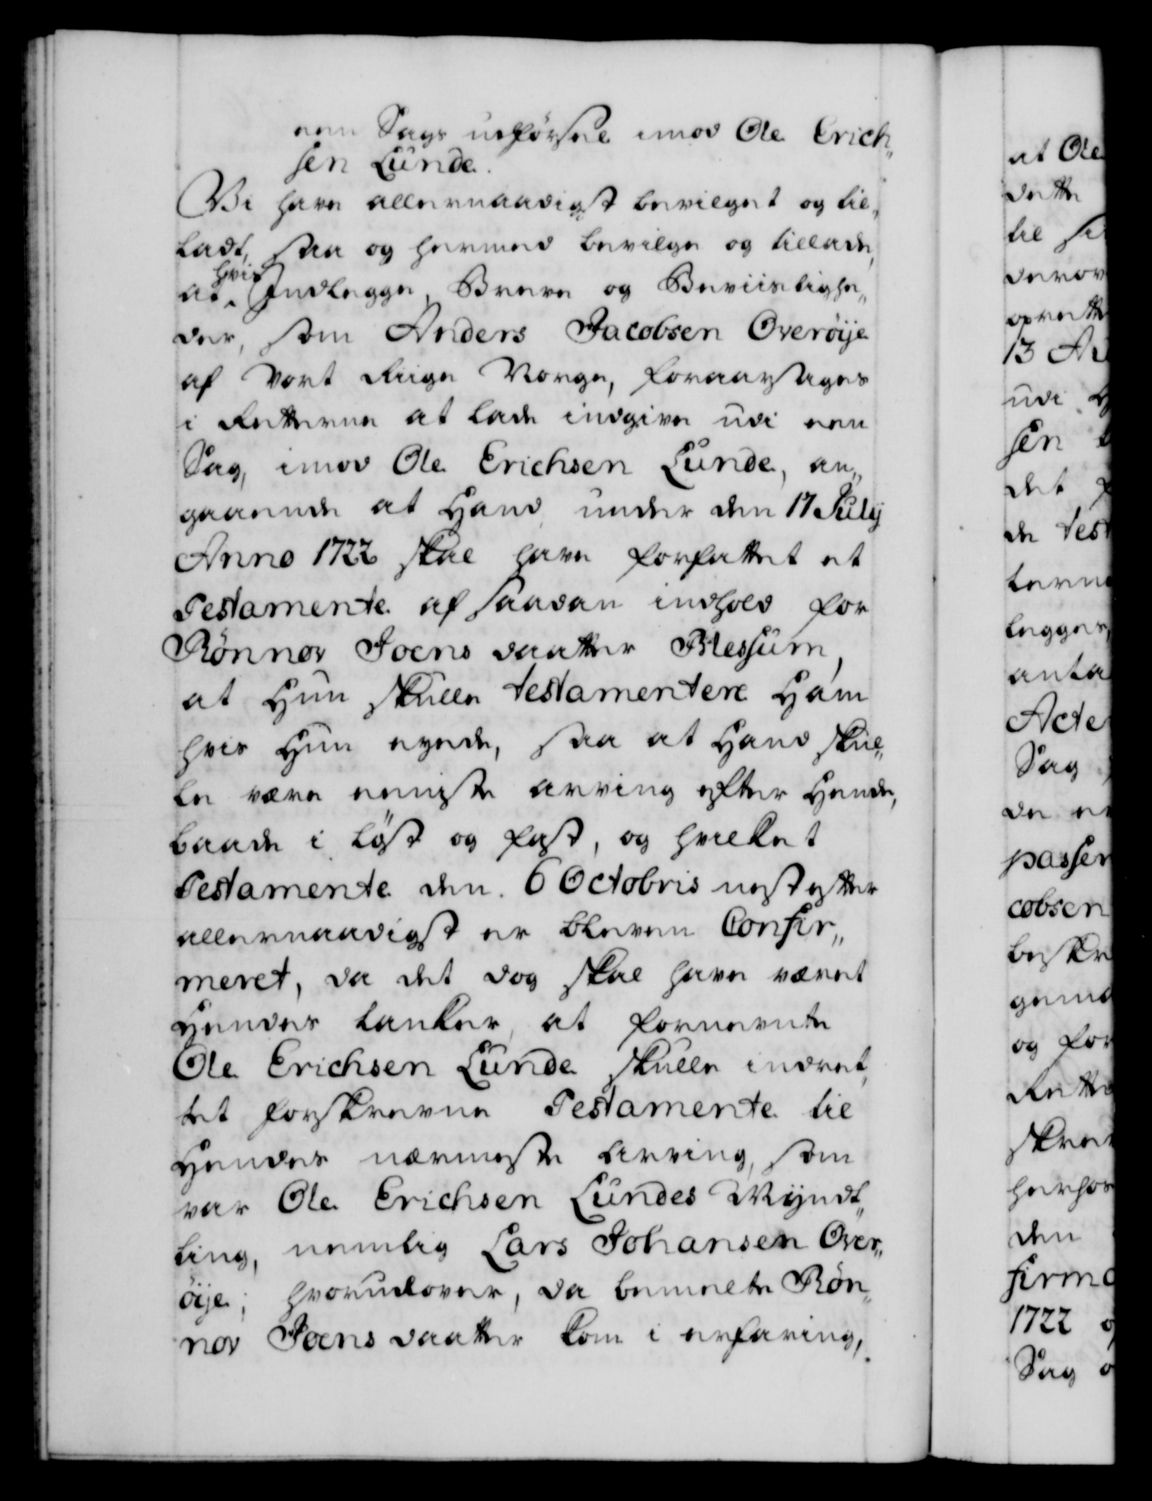 een Sags udførsel imod Ole Erich„
sen Lunde.
Vi have allernaadigst bevilget og til„
ladt, saa og hermed bevilge og tillade,
at hvis Indlegge, Breve og Beviislighe„
der, som Anders Jacobsen Overøije
af Vort Riige Norge, foraarsages
i Retterne at lade indgive udi een
Sag, imod Ole Erichsen Lunde, an„
gaaende at Hand under den 17 July
Anno 1722 skal have forfattet et
Testamente af saadan indhold for
Rønnov Joens daatter Blessum,
at Hun skulle testamentere Ham
hvis Hun eyede, saa at Hand skul„
le være eeniste arving efter Hende,
baade i løst og fast, og hvilket
Testamente den 6 Octobris nestefter
allernaadigst er bleven Confir„
meret, da det dog skal have været
Hendes tanker, at fornevnte
Ole Erichsen Lunde skulle indret„
tet forskrevne Testamente til
Hendes nærmeste Arving, som
var Ole Erichsen Lundes Myndt„
ling, nemlig Lars Johansen Over„
øije; hvorudover, da bemelte Røn„
nov Joens daatter kom i erfaring,
at Ole
dette
til
derov
oprette
13
udi
sen
det
de
terne
legges,
anta
Acte
Sag
de
passer
cobsen
beskr
og for
Rette
skrev
herhos
den
firme
1722
Sag